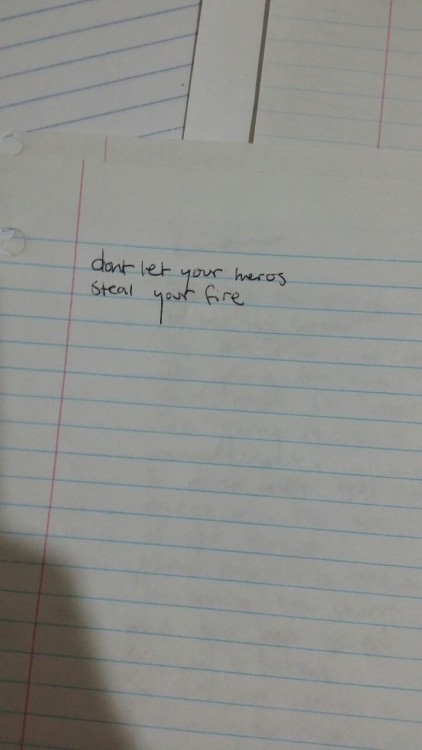 dont let your heros
steal your fire